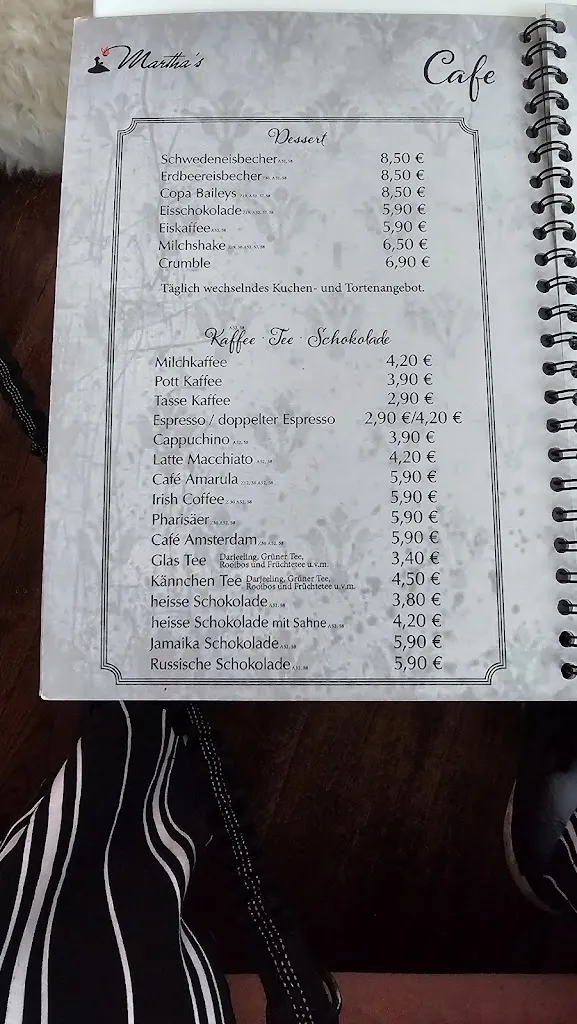 Martha's
Cafe
Dessert
Schwedeneisbecher 8,50 €
Erdbeereisbecher 8,50 €
Copa Baileys 8,50 €
Eisschokolade 5,90 €
Eiskaffee 5,90 €
Milchshake 6,50 €
Crumble 6,90 €
Täglich wechselndes Kuchen- und Tortenangebot.
Kaffee · Tee · Schokolade
Milchkaffee 4,20 €
Pott Kaffee 3,90 €
Tasse Kaffee 2,90 €
Espresso / doppelter Espresso 2,90 €/4,20 €
Cappuchino 3,90 €
Latte Macchiato 4,20 €
Café Amarula 5,90 €
Irish Coffee 5,90 €
Pharisäer 5,90 €
Café Amsterdam 5,90 €
Glas Tee Darjeeling, Grüner Tee, 3,40 €
Rooibos und Früchtetee u.v.m.
Kännchen Tee Darjeeling, Grüner Tee, 4,50 €
Rooibos und Früchtetee u.v.m.
heisse Schokolade 3,80 €
heisse Schokolade mit Sahne 4,20 €
Jamaika Schokolade 5,90 €
Russische Schokolade 5,90 €